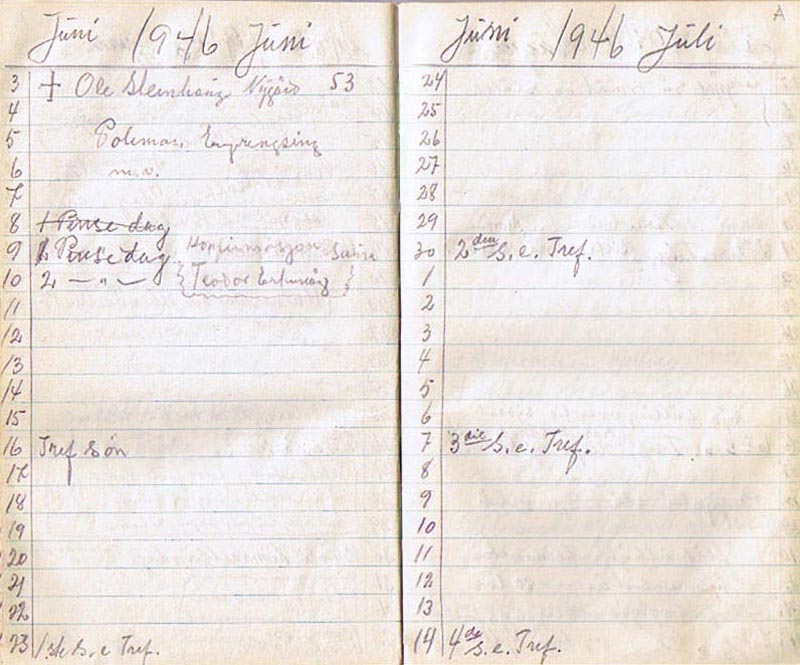 Juni 1946 Juni
3 + Ole Steinhaug Nygård 53
4
5
6 m.v.
7
8 1 Pinsedag
9 1 Pinsedag Konfirmasjon
10 2 — " — {Teodor}
11
12
13
14
15
16 Tref Søn
17
18
19
20
21
22
23 1ste S. e Tref.
Juni 1946 Juli
A
24
25
26
27
28
29
30 2den S. e. Tref.
1
2
3
4
5
6
7 3die S. e. Tref.
8
9
10
11
12
13
14 4de S. e. Tref.